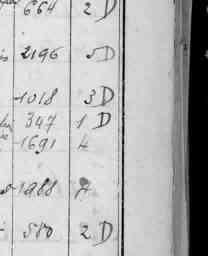 664 2 D
2196 5 D
1018 3 D
347 1 D
1691 4
1988
580 2 D